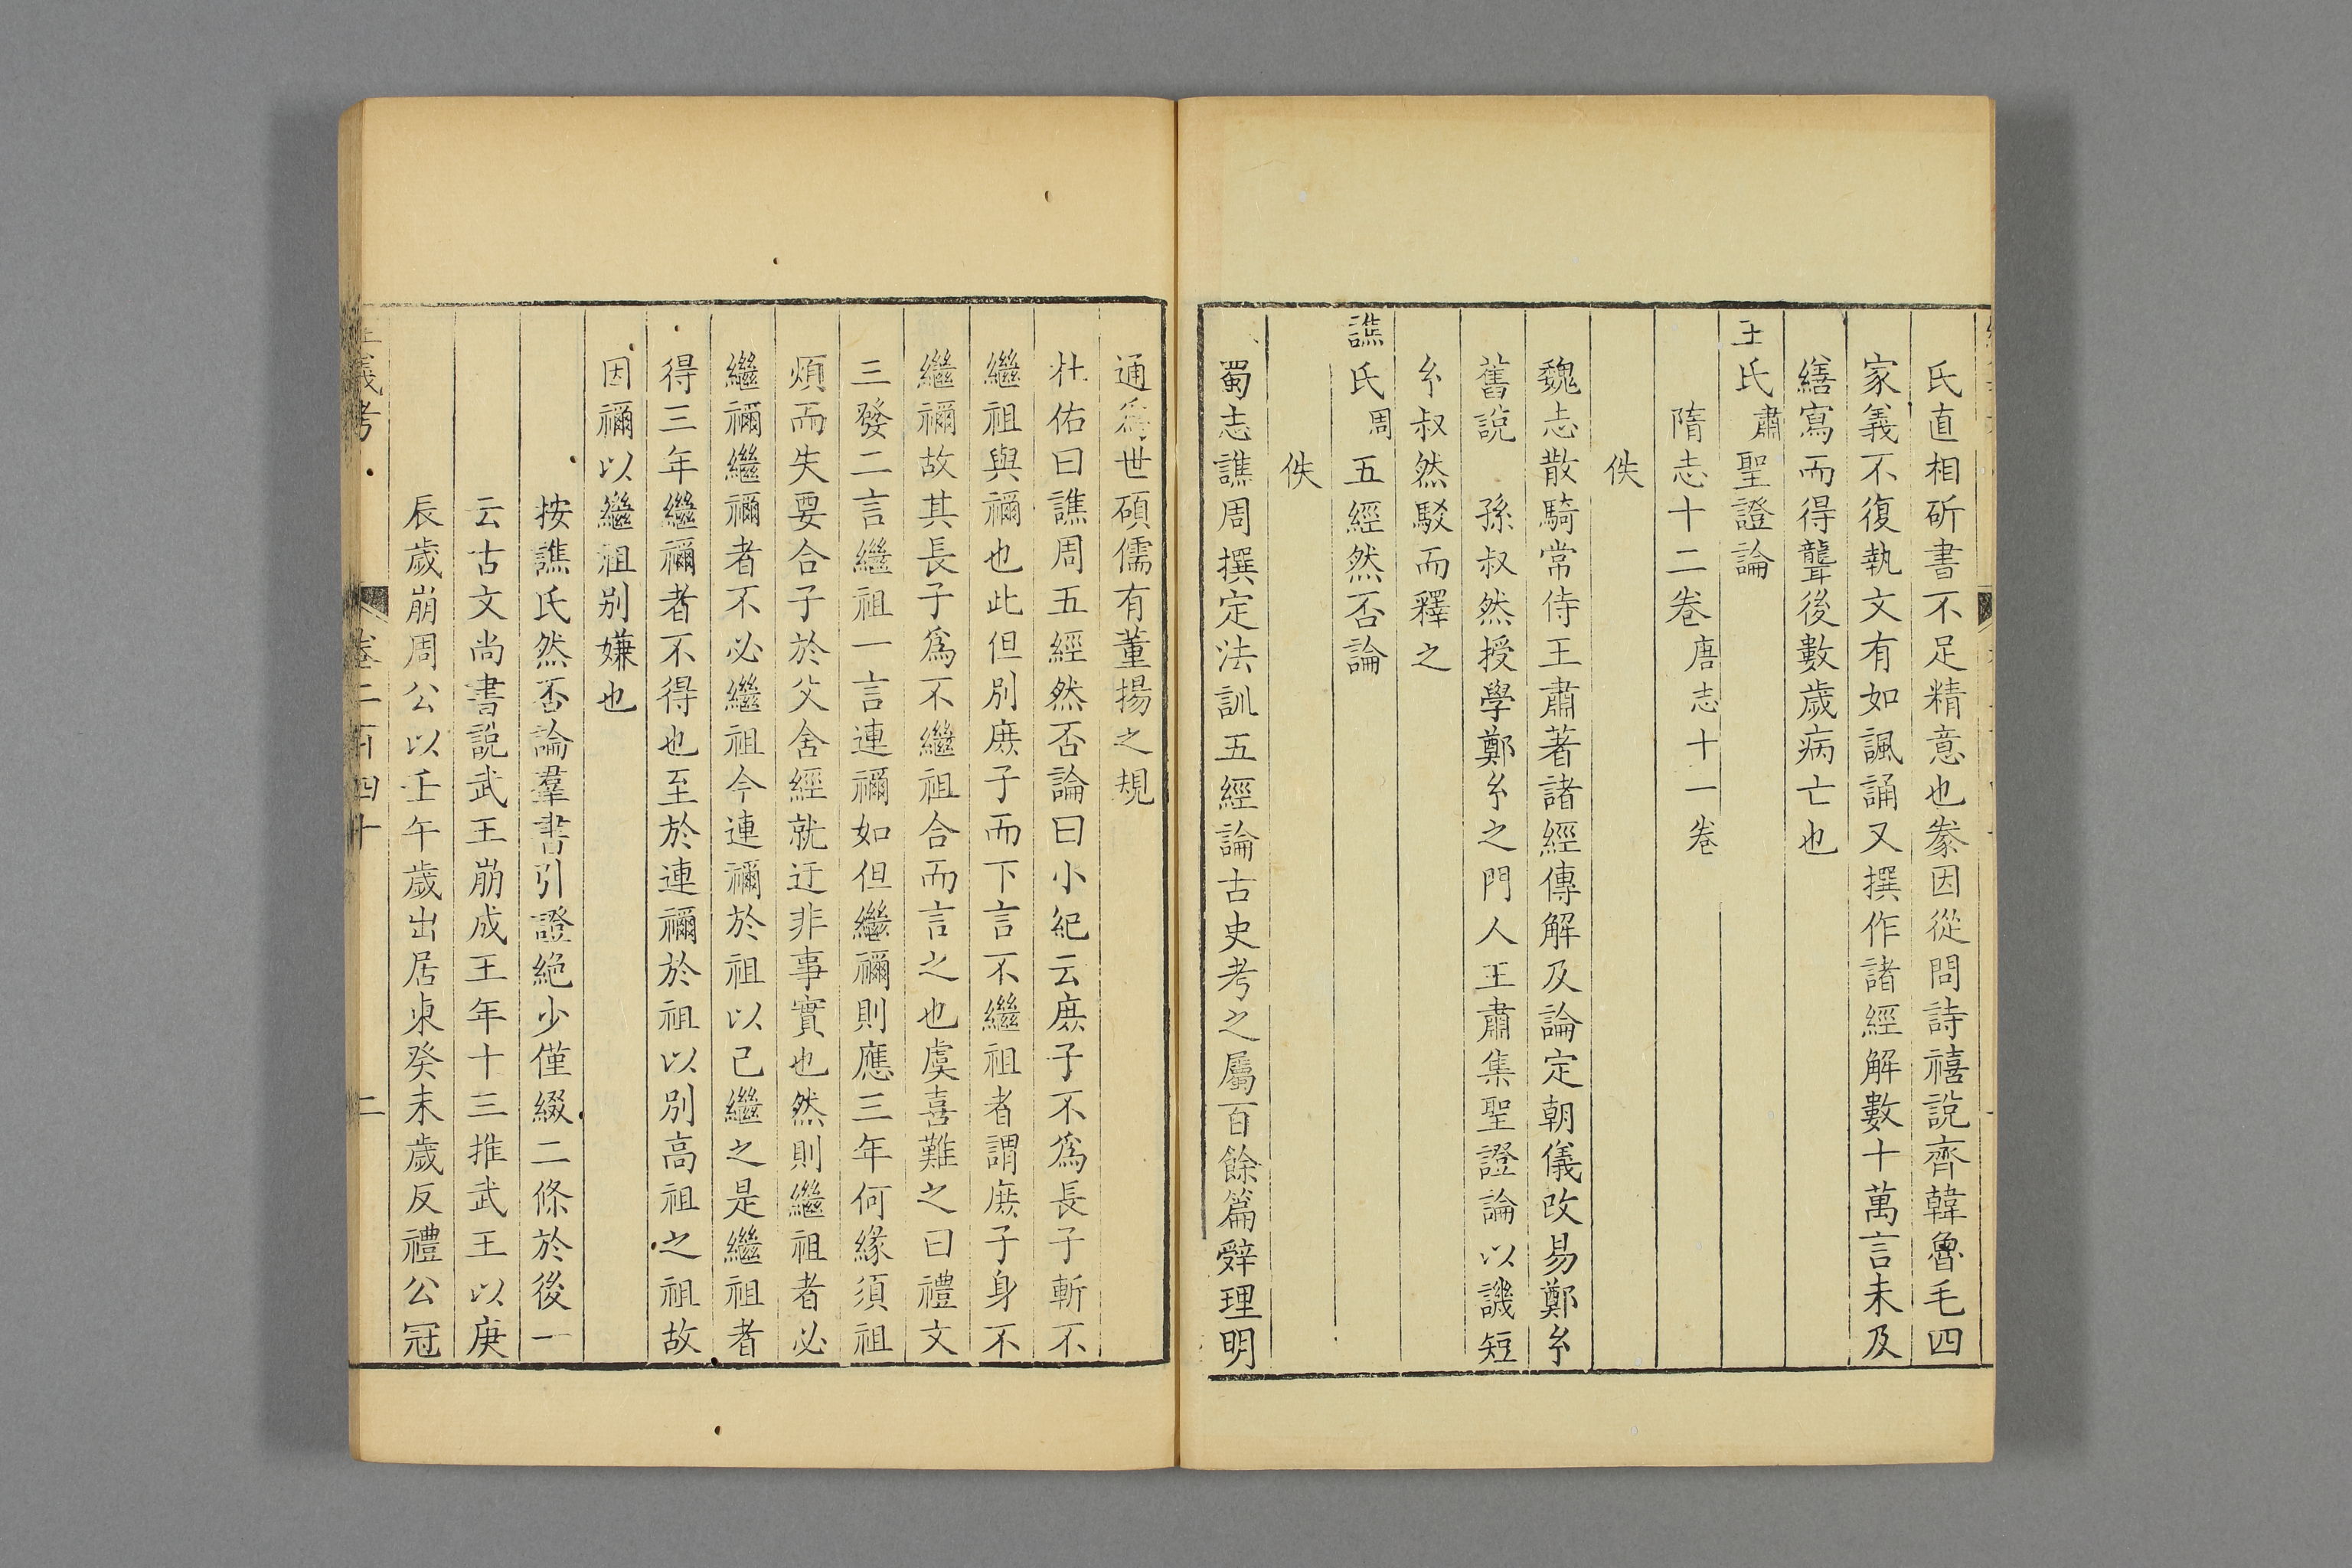 氏直相斫書不足精意也豢因從問詩禧說齊韓魯毛四
家義不復執文有如諷誦又撰作諸經解數十萬言未及
繕寫而得聾後數歲病亡也
王氏肅聖證論
隋志十二卷唐志十一卷
佚
魏志散騎常侍王肅著諸經傳解及論定朝儀改易鄭𤣥
舊說　孫叔然授學鄭𤣥之門人王肅集聖證論以譏短
𤣥叔然駁而釋之
譙氏周五經然否論
佚
蜀志譙周撰定法訓五經論古史考之屬百餘篇辭理明
通爲世碩儒有董揚之規
杜佑曰譙周五經然否論曰小紀云庶子不爲長子斬不
繼祖與禰也此但別庶子而下言不繼祖者謂庶子身不
繼禰故其長子爲不繼祖合而言之也虞喜難之曰禮文
三發二言繼祖一言連禰如但繼禰則應三年何緣須祖
煩而失要合子於父舍經就迂非事實也然則繼祖者必
繼禰繼禰者不必繼祖今連禰於祖以己繼之是繼祖者
得三年繼禰者不得也至於連禰於祖以別高祖之祖故
因禰以繼祖別嫌也
按譙氏然否論羣書引證絕少僅綴二條於後一
云古文尚書說武王崩成王年十三推武王以庚
辰歲崩周公以壬午歲出居東癸未歲反禮公冠
義考
卷二百四十
二